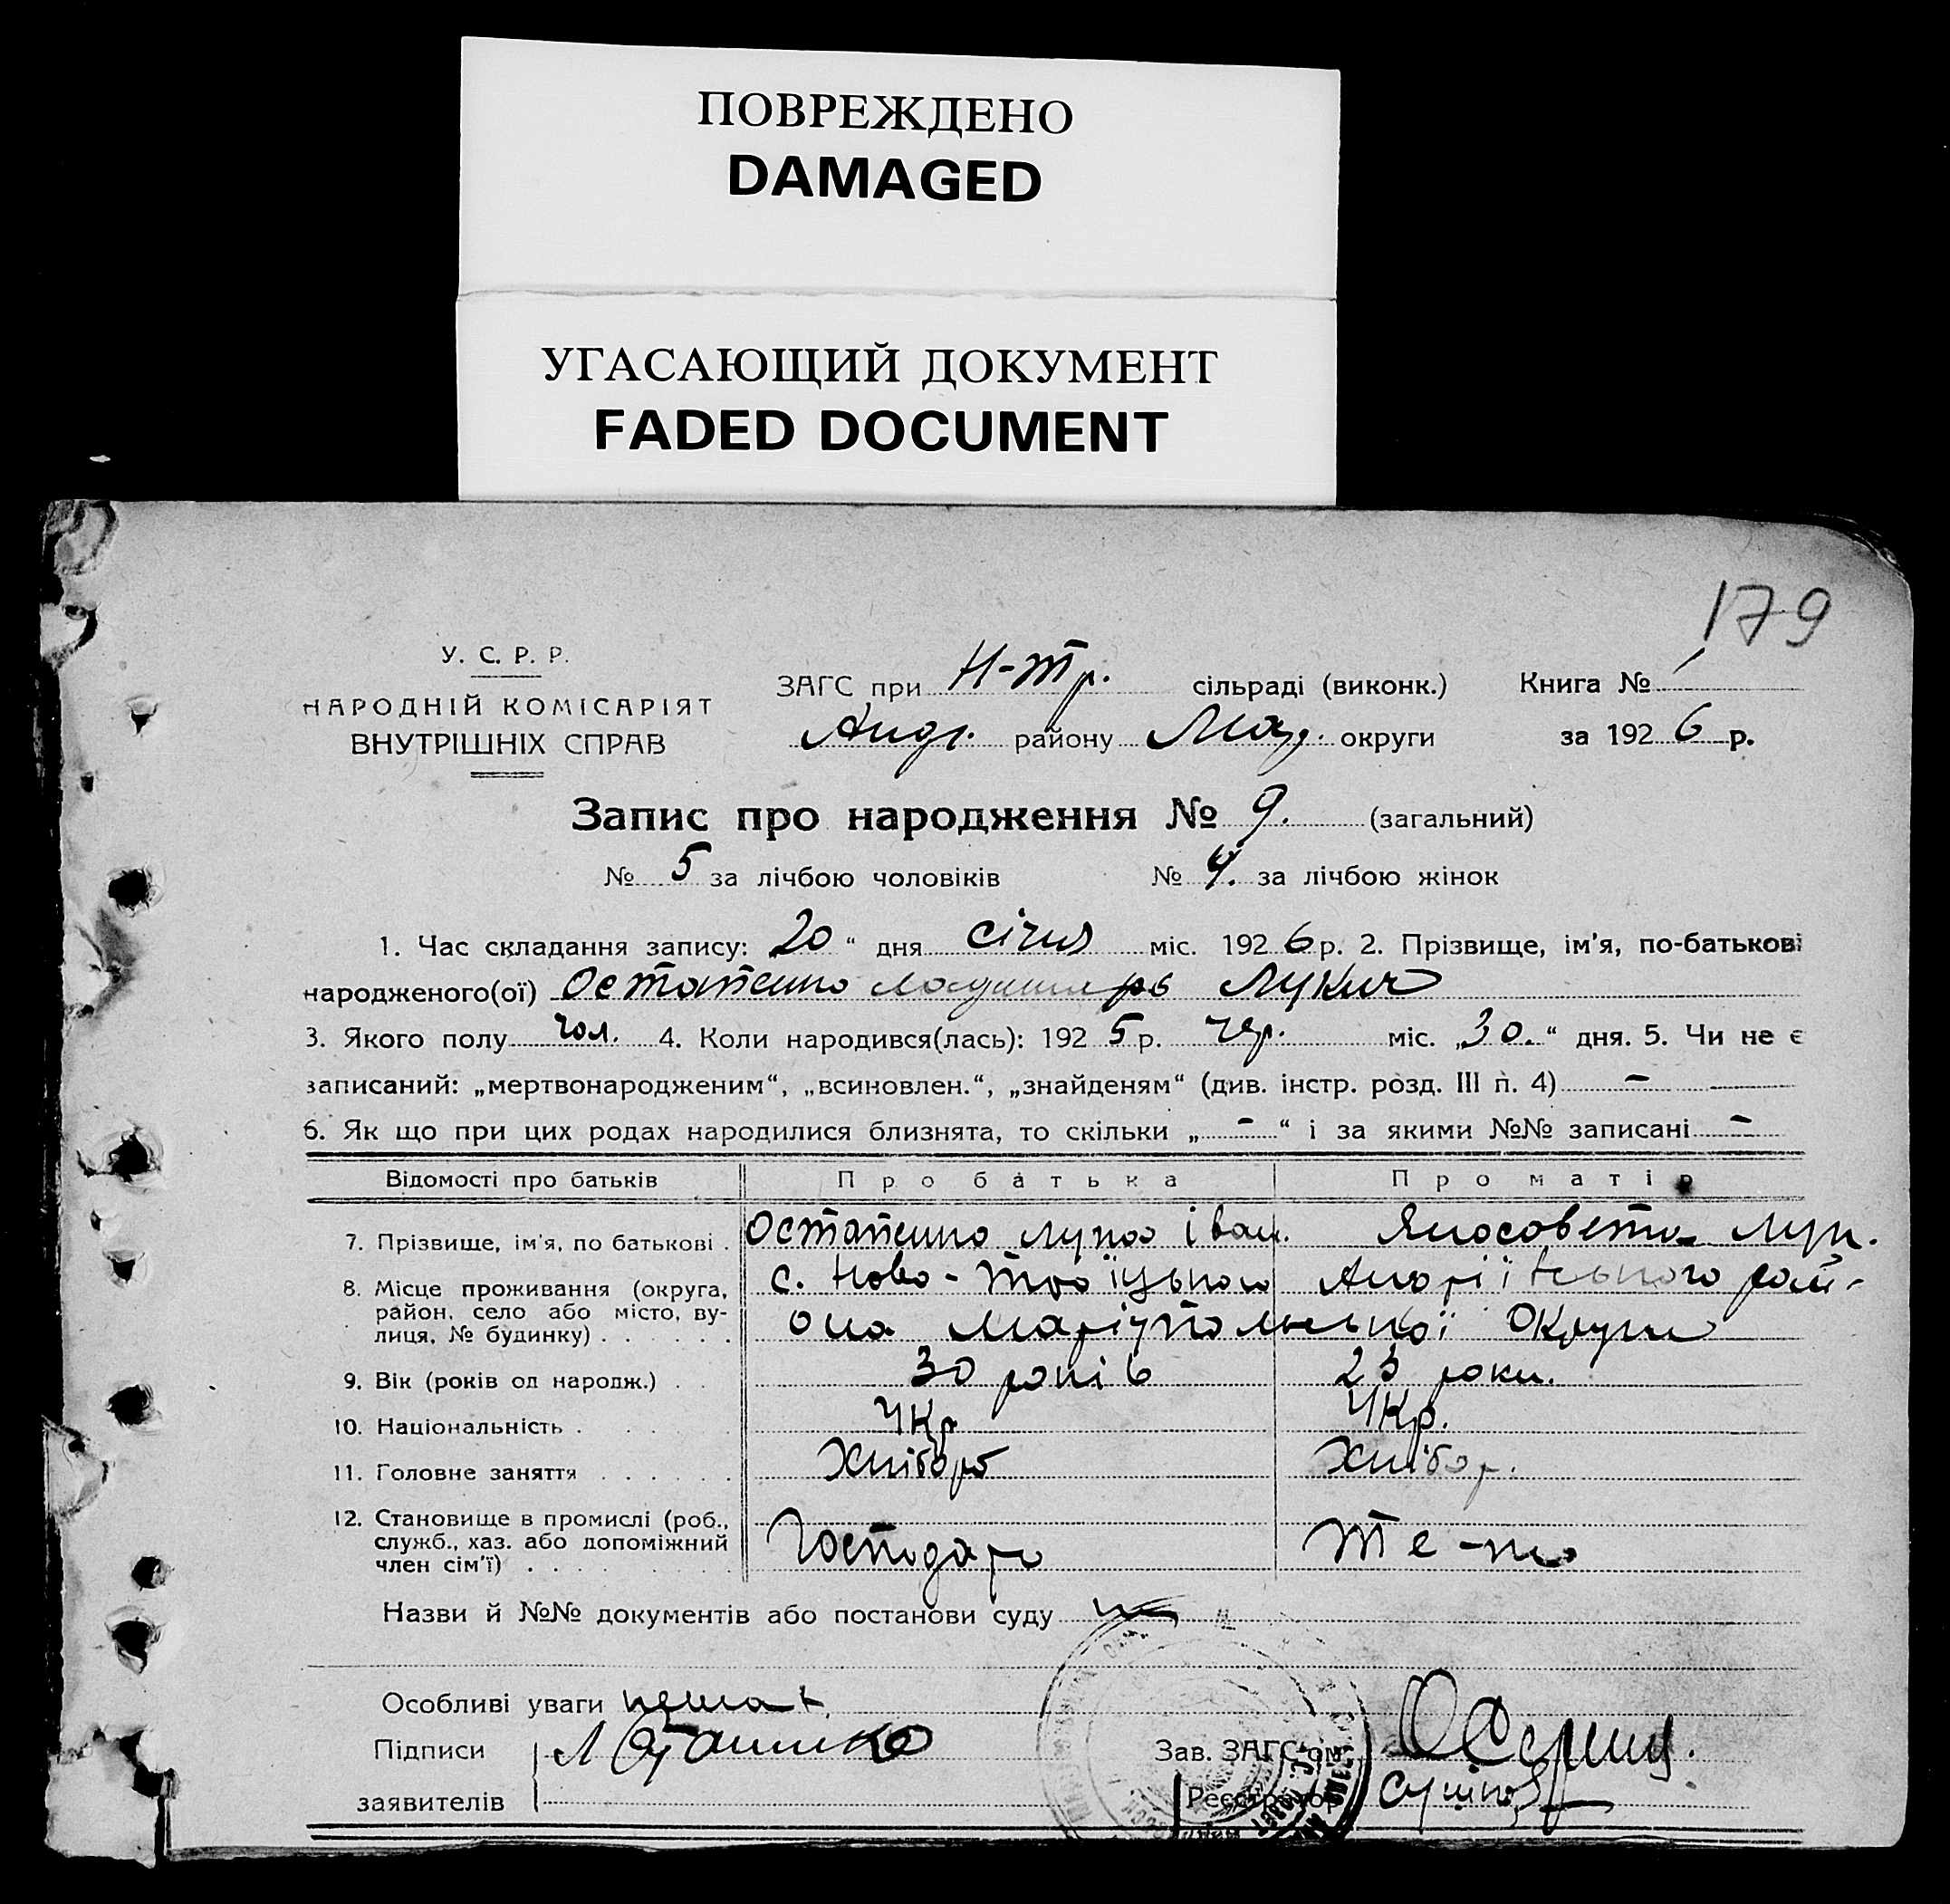 ПОВРЕЖДЕНО
DAMAGED
УГАСАЮЩИЙ ДОКУМЕНТ
FADED DOCUMENT
179
У. С. Р. Р.
НАРОДНІЙ КОМІСАРІЯТ
ВНУТРІШНІХ СПРАВ
ЗАГС при Н-Тр. сільраді (виконк.) Книга № 1
району округи за 1926 р.
Запис про народження № 9. (загальний)
№ 5 за лічбою чоловіків № 4. за лічбою жінок
1. Час складання запису: 20 “ дня січня міс. 1926 р. 2. Прізвище, ім'я, по-батькові
народженого(ої) Остапенко Лукич
3. Якого полу чол. 4. Коли народився(лась): 1925 р. міс. „30.“ дня. 5. Чи не є
записаний: „мертвонародженим“, „всиновлен.“, „знайденям“ (див. інстр. розд. III п. 4) –
6. Як що при цих родах народилися близнята, то скільки „ – “ і за якими №№ записані –
Відомості про батьків Про батька Про матір
7. Прізвище, ім'я, по батькові . Остапенко Лука Іван.
8. Місце проживання (округа, район, село або місто, вулиця, № будинку) . . . . . . с. Ново-Троїцького рай-
она Маріупольської Округи
9. Вік (років од народж.) . . 30 років 23 роки.
10. Національність . . . . Укр Укр.
11. Головне заняття . . . . . . Хлібороб Хлібор.
12. Становище в промислі (роб., служб., хаз. або допоміжний член сім'ї) . . . . Господарь Те-ж
Назви й №№ документів або постанови суду
Особливі уваги немає
Підписи
заявителів
Зав. ЗАГС'ом
Реєстратор